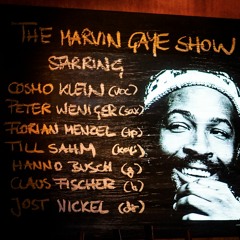 THE MARVIN GAYE SHOW
STARRING
COSMO KLEIN (voc)
PETER WENIGER (sax)
FLORIAN MENZEL (tp)
TILL SAHM (keys)
HANNO BUSCH (g)
CLAUS FISCHER (b)
JOST NICKEL (dr)